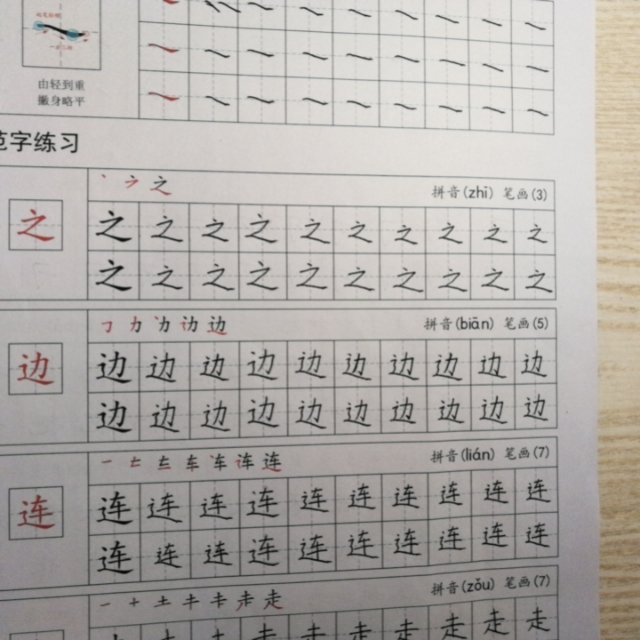 由轻到重
撇身略平
范字练习
之 拼音(zhī) 笔画(3)
之
之 之 之 之 之 之 之 之 之 之
之 之 之 之 之 之 之 之 之 之
边 拼音(biān) 笔画(5)
边
边 边 边 边 边 边 边 边 边 边
边 边 边 边 边 边 边 边 边 边
连 拼音(lián) 笔画(7)
连
连 连 连 连 连 连 连 连 连 连
连 连 连 连 连 连 连 连 连 连
走 拼音(zǒu) 笔画(7)
走 走 走 走 走